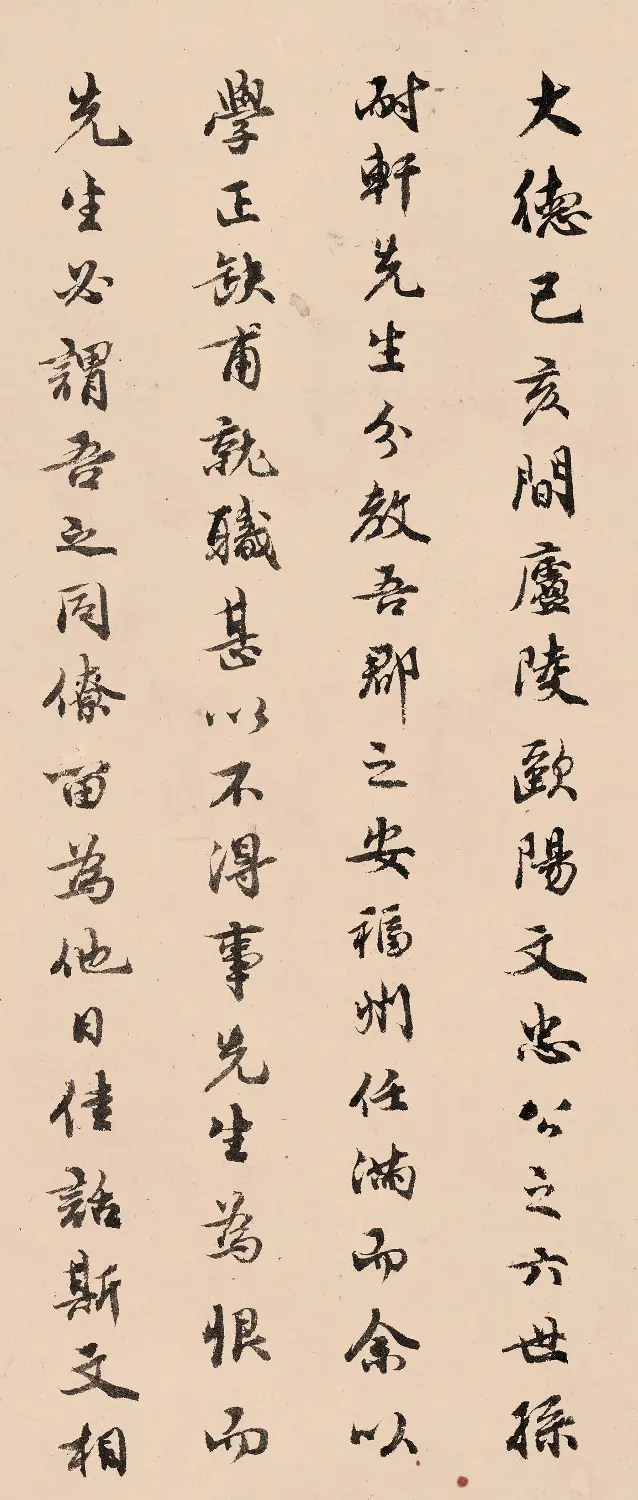 大德己亥間廬陵歐陽文忠公之六世孫
耐軒先生分教吾郡之安福州任滿而余以
學正缺甫就職甚以不得事先生為恨而
先生必謂吾之同僚留為他日佳話斯文相